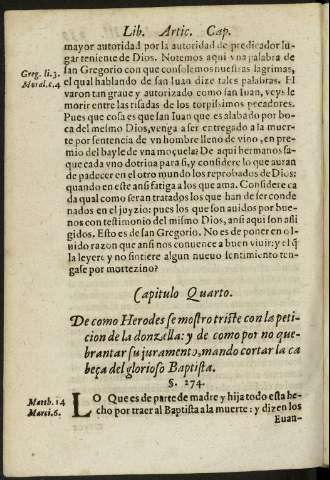 Lib. Artic. Cap.
mayor autoridad por la autoridad de predicador lu-
gar teniente de Dios. Notemos aqui vna palabra de
Greg. li.3.
san Gregorio con que consolemos nuestras lagrimas,
Moral.c.4
el qual hablando de san Iuan dize tales palabras. El
varon tan graue y autorizado como san Iuan, veys le
morir entre las risadas de los torpissimos pecadores.
Pues que cosa es que san Iuan que es alabado por bo-
ca del mesmo Dios, venga a ser entregado a la muer-
te por sentencia de vn hombre lleno de vino, en pre-
mio del bayle de vna moçuela? De aqui hermanos sa-
que cada vno dotrina para si, y considere lo que auran
de padecer en el otro mundo los reprobados de Dios:
quando en este ansi fatiga a los que ama. Considere ca
da qual como seran tratados los que han de ser conde
nados en el juyzio: pues los que son auidos por bue-
nos con testimonio del mismo Dios, ansi aqui son afli
gidos. Esto es de san Gregorio. No es de poner en ol-
uido razon que ansi nos conuence a buen viuir: y el q̃
la leyere y no sintiere algun nueuo sentimiento ten-
gase por mortezino?
Capitulo Quarto.
De como Herodes se mostro triste con la peti-
cion de la donzella: y de como por no que-
brantar su juramento, mando cortar la ca
beça del glorioso Baptista.
§. 274.
Matth.14
LO Que es de parte de madre y hija todo esta he-
Marci.6.
cho por traer al Baptista a la muerte: y dizen los
Euan-